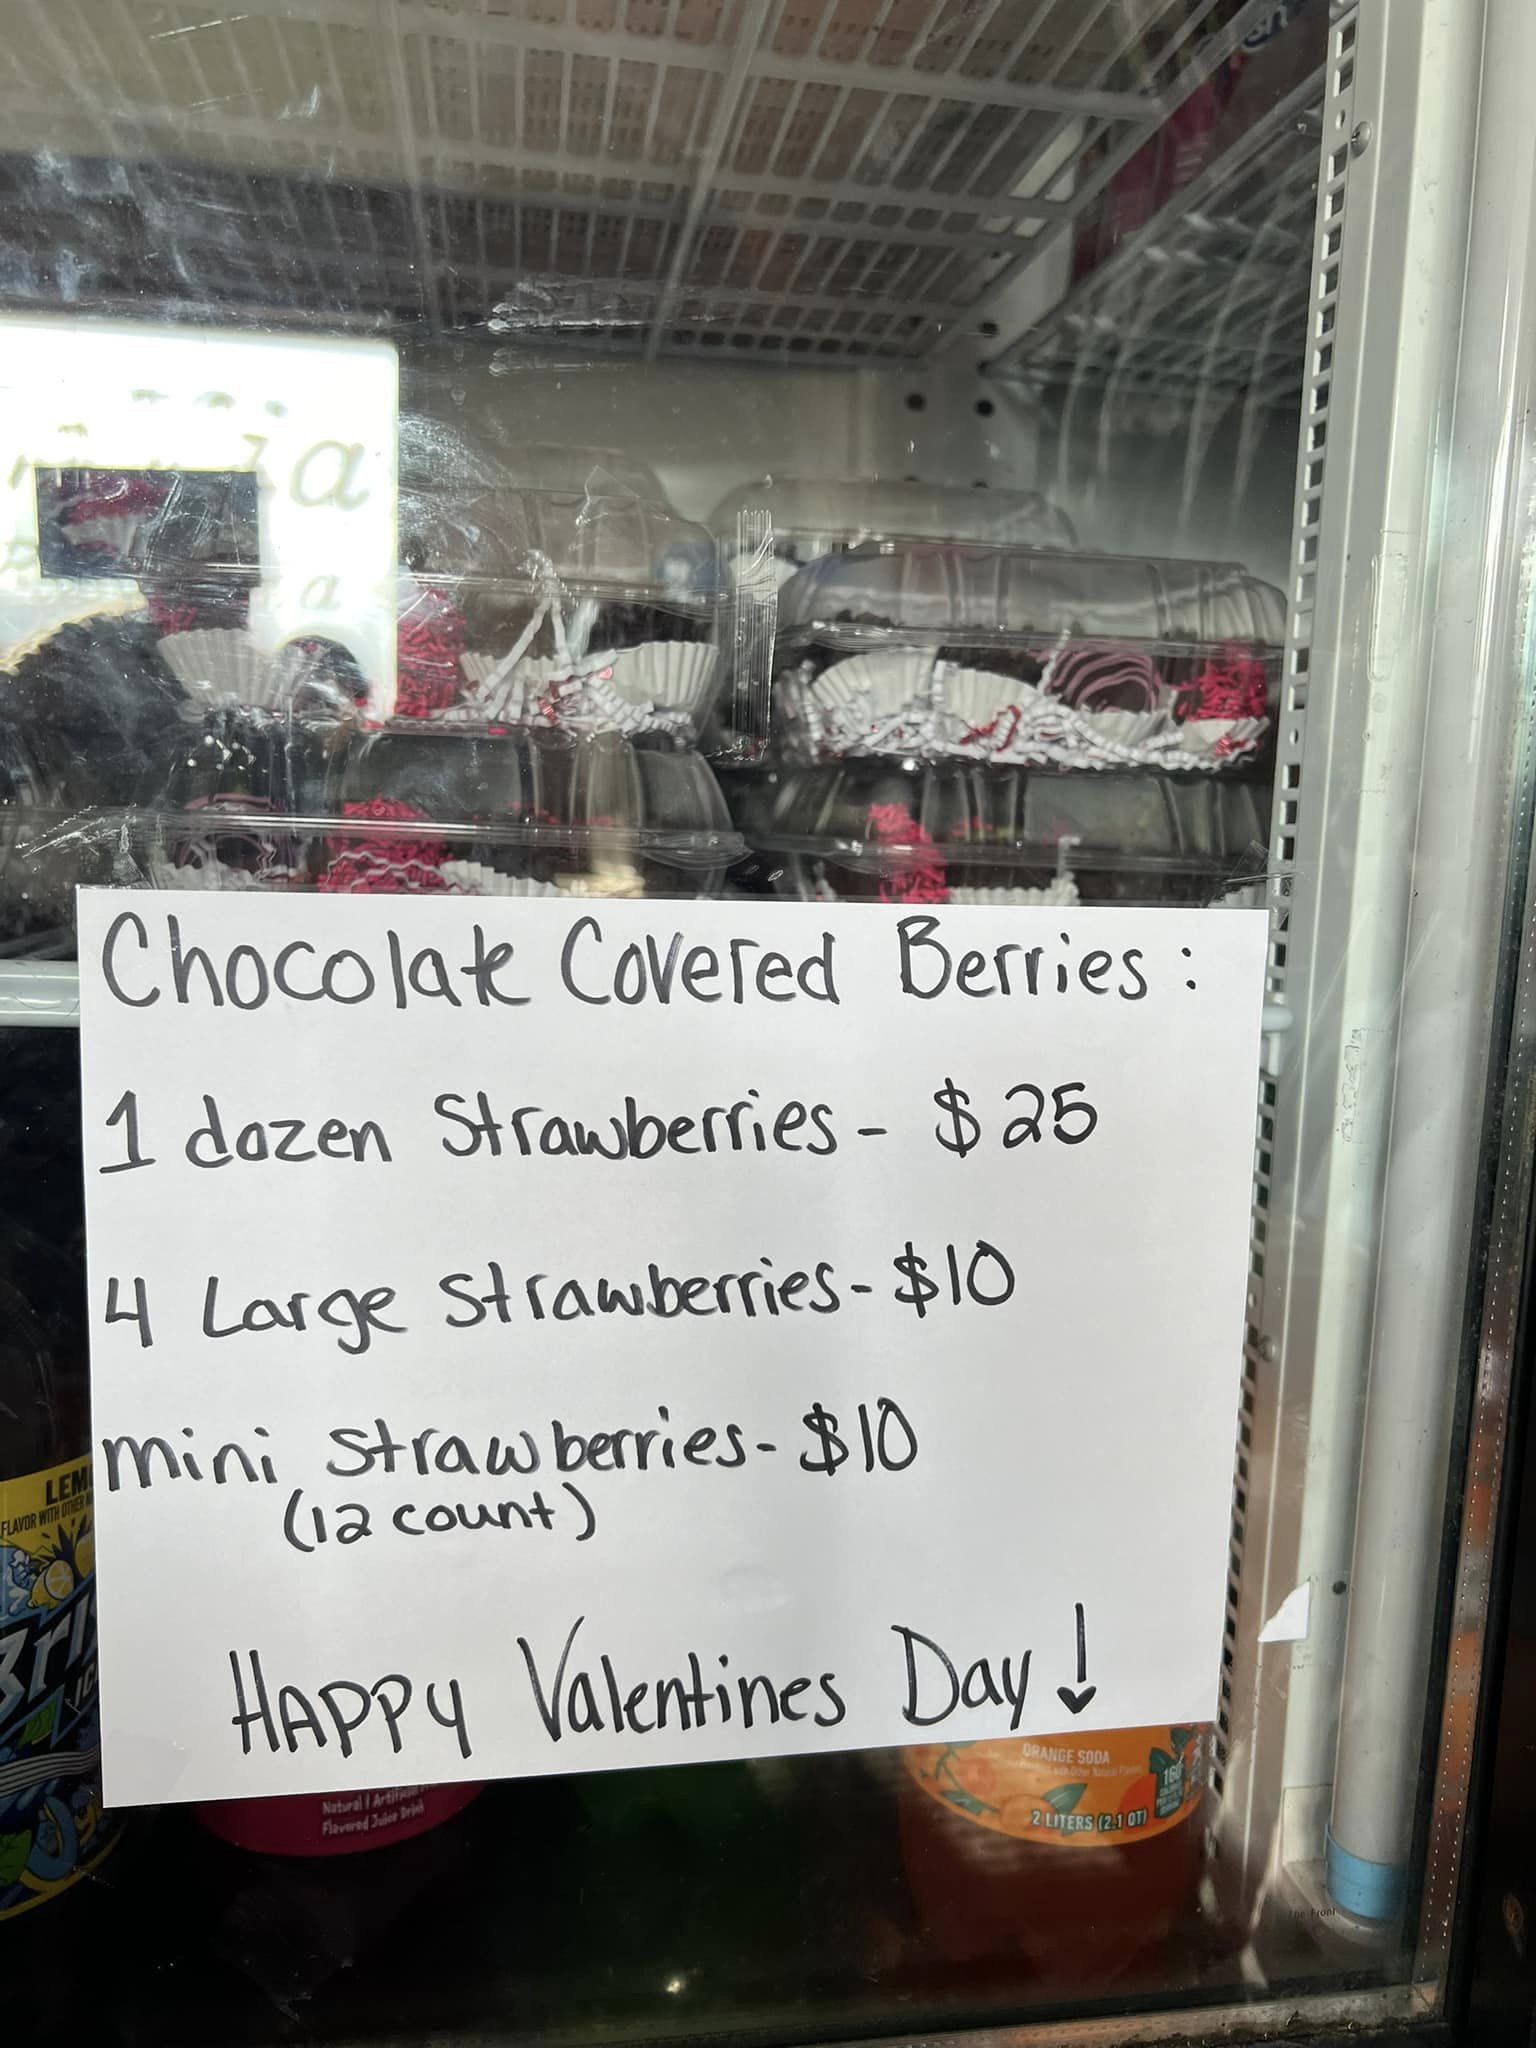 Chocolate Covered Berries:
1 dozen Strawberries - $25
4 Large Strawberries - $10
mini Strawberries - $10
(12 count)
HAPPY Valentines Day
LEM
FLAVOR WITH OTHER
Natural | Artificial
Flavored Juice Drink
ORANGE SODA
with Other Natural Flavors
160
2 LITERS (2.1 QT)
The Front